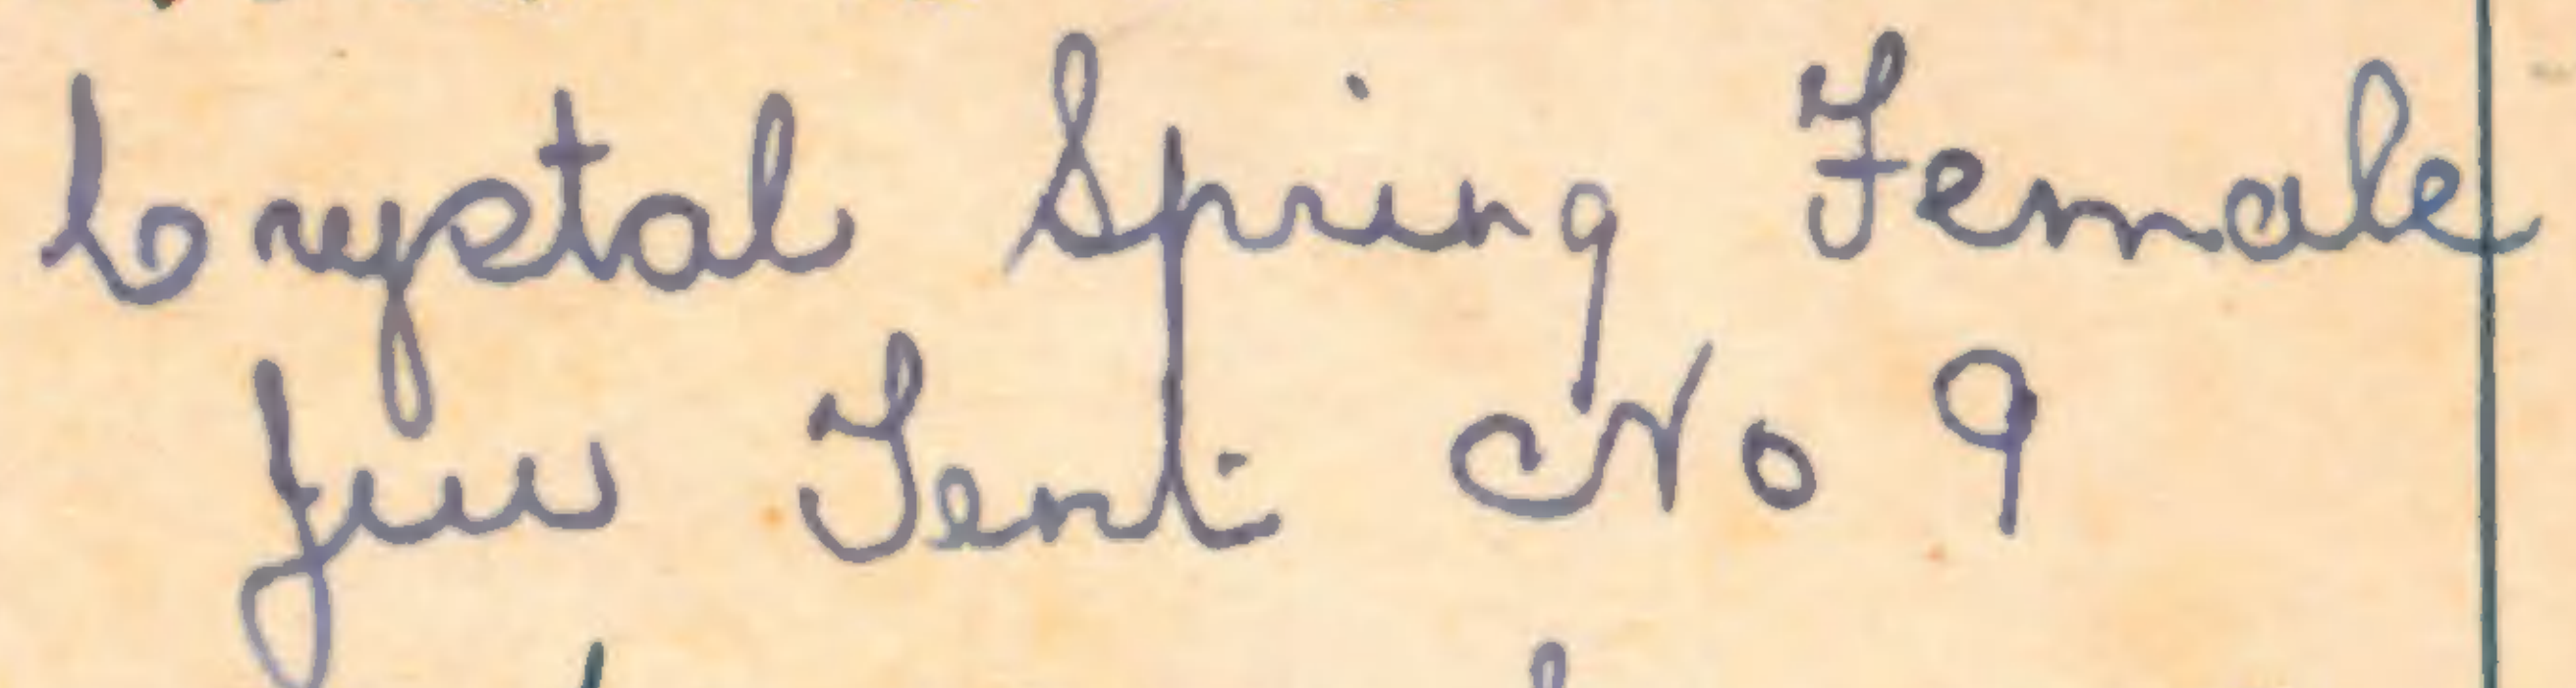 Crystal Spring Female
Juv Tent No 9